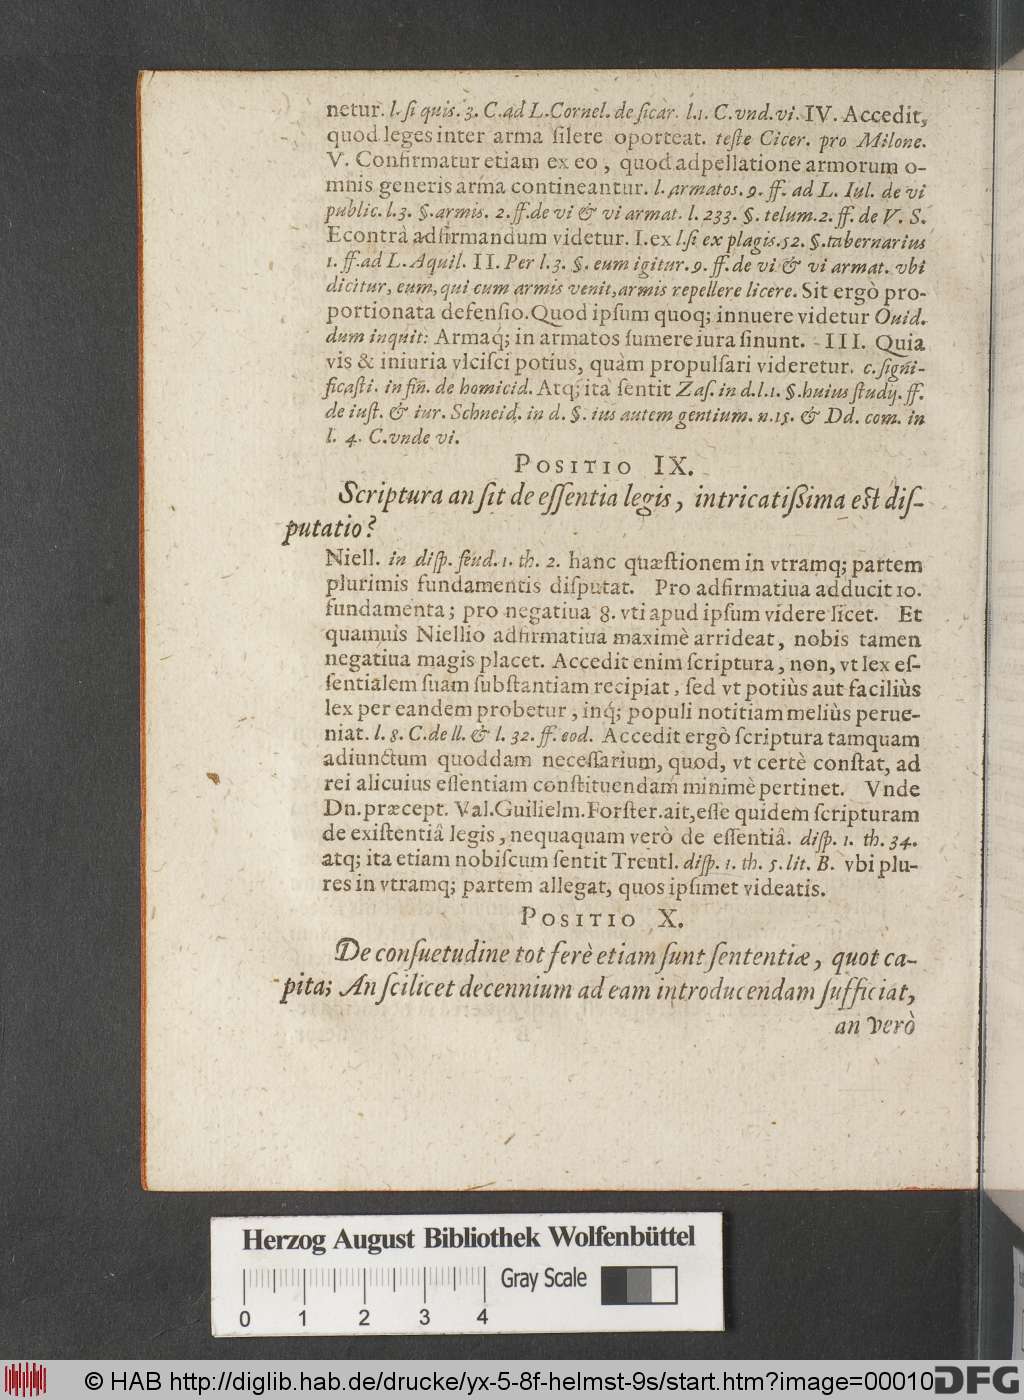 netur. l. ſi quis. 3. C. ad L. Cornel. de ſicar. l.1. C. vnd. vi. IV. Accedit,
quod leges inter arma ſilere oporteat. teſte Cicer. pro Milone.
V. Confirmatur etiam ex eo, quod adpellatione armorum o-
mnis generis arma contineantur. l. armatos. 9. ff. ad L. Iul. de vi
public. l.3. §. armis. 2. ff. de vi & vi armat. l. 233. §. telum. 2. ff. de V. S.
Econtrà adfirmandum videtur. I. ex l. ſi ex plagis. 52. §. tabernarius
1. ff. ad L. Aquil. II. Per l. 3. §. eum igitur. 9. ff. de vi & vi armat. vbi
dicitur, eum, qui cum armis venit, armis repellere licere. Sit ergò pro-
portionata defenſio. Quod ipſum quoq; innuere videtur Ouid.
dum inquit: Armaq́; in armatos ſumere iura ſinunt. III. Quia
vis & iniuria vlciſci potius, quàm propulſari videretur. c. ſigni-
ficaſti. in fin. de homicid. Atq; ita ſentit Zaſ. in d. l. 1. §. huius ſtudij. ff.
de iuſt. & iur. Schneid. in d. §. ius autem gentium. n. 15. & Dd. com. in
l. 4. C. vnde vi.
POSITIO IX.
Scriptura an ſit de eſſentia legis, intricatiſſima eſt diſ-
putatio?
Niell. in diſp. feud. 1. th. 2. hanc quæſtionem in vtramq; partem
plurimis fundamentis diſputat. Pro adfirmatiua adducit 10.
fundamenta; pro negatiua 8. vti apud ipſum videre licet. Et
quamuis Niellio adfirmatiua maximè arrideat, nobis tamen
negatiua magis placet. Accedit enim ſcriptura, non, vt lex eſ-
ſentialem ſuam ſubſtantiam recipiat, ſed vt potiùs aut faciliùs
lex per eandem probetur, inq́; populi notitiam meliùs perue-
niat. l. 8. C. de ll. & l. 32. ff. eod. Accedit ergò ſcriptura tamquam
adiunctum quoddam neceſſarium, quod, vt certè conſtat, ad
rei alicuius eſſentiam conſtituendam minimè pertinet. Vnde
Dn. præcept. Val. Guilielm. Forſter. ait, eſſe quidem ſcripturam
de exiſtentiâ legis, nequaquam verò de eſſentiâ. diſp. 1. th. 34.
atq; ita etiam nobiſcum ſentit Treutl. diſp. 1. th. 5. lit. B. vbi plu-
res in vtramq; partem allegat, quos ipſimet videatis.
POSITIO X.
De conſuetudine tot ferè etiam ſunt ſententiæ, quot ca-
pita; An ſcilicet decennium ad eam introducendam ſufficiat,
an verò
Herzog August Bibliothek Wolfenbüttel
Gray Scale
0 1 2 3 4
© HAB http://diglib.hab.de/drucke/yx-5-8f-helmst-9s/start.htm?image=00010
DFG